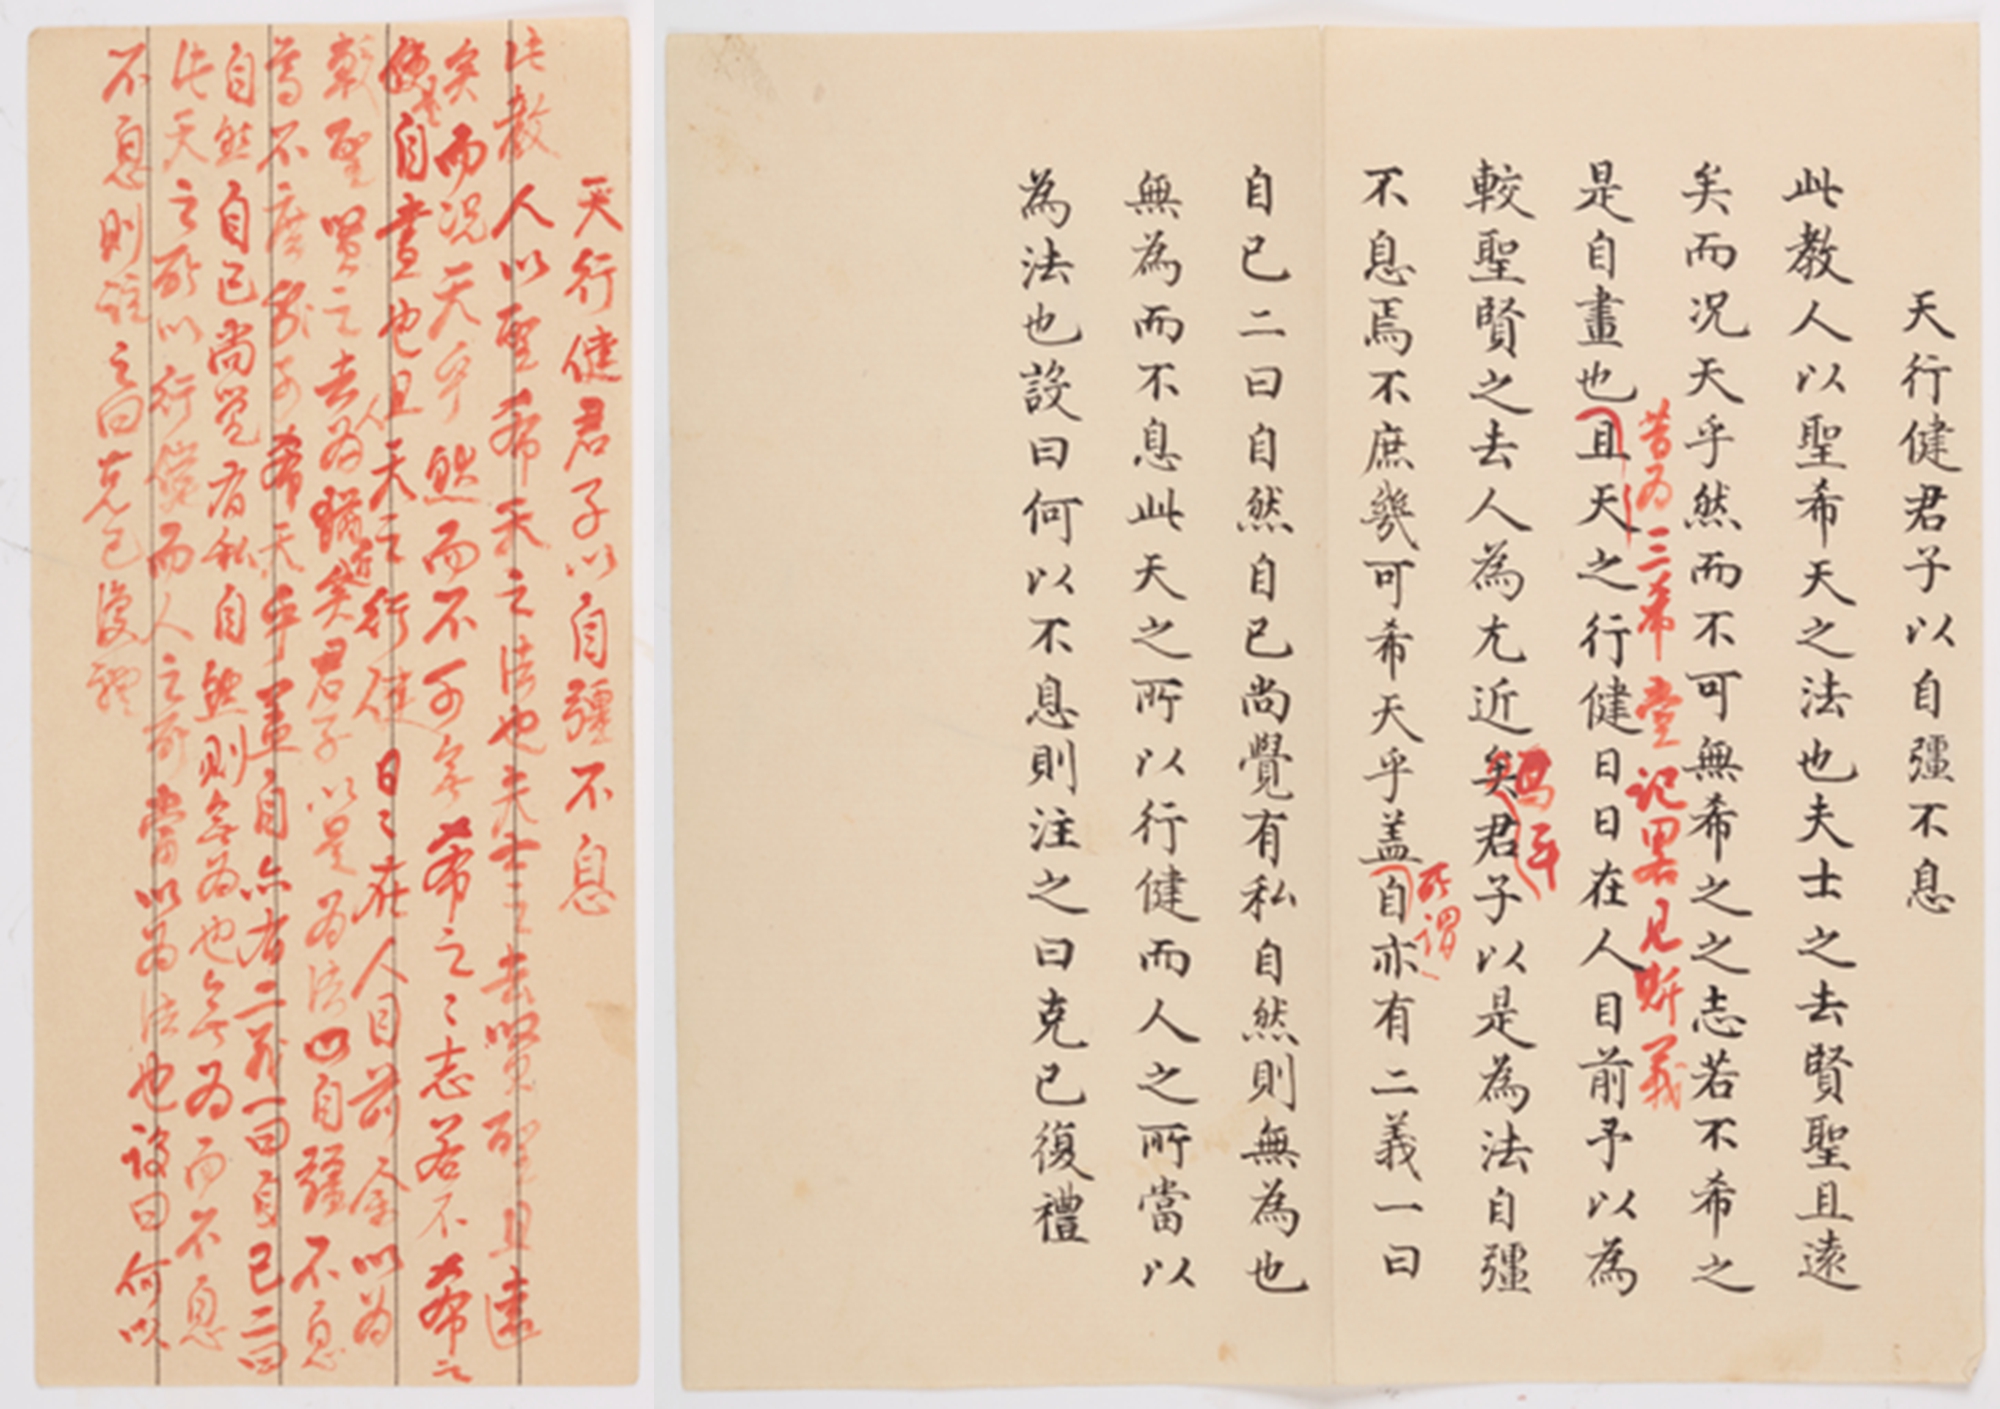 天行健君子以自彊不息
此教人以聖希天之法也夫士之去賢聖且遠
矣而况天乎然而不可無希之之志若不希之
昔為三希堂記畧見斯義
是自畫也且天之行健日日在人目前予以為
焉耳
較聖賢之去人為尤近矣君子以是為法自彊
所謂
不息焉不庶幾可希天乎盖自亦有二義一曰
自已二曰自然自已尚覺有私自然則無為也
無為而不息此天之所以行健而人之所當以
為法也設曰何以不息則注之曰克已復禮
天行健君子以自彊不息
此教人以聖希天之法也夫士之去賢聖且遠
矣而况天乎然而不可無希之之志若不希之
是自畫也且天之行健日日在人目前余以為
較聖賢之去人為猶近矣君子以是為法自彊不息
焉不庶幾可希天乎盖自亦有二義一曰自已二曰
自然自已尚覺有私自然則無為也無為而不息
此天之所以行健而人之所當以為法也設曰何以
不息則注之曰克已復禮